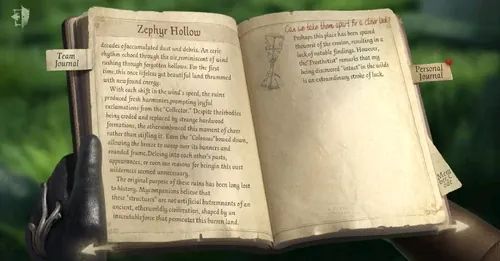 Team
Journal
Zephyr Hollow
decades of accumulated dust and debris. An eerie
rhythm echoed through the air, reminiscent of wind
rushing through forgotten hollows. For the first
time, this once lifeless yet beautiful land thrummed
with newfound energy.
With each shift in the wind's speed, the ruins
produced fresh harmonies, prompting joyful
exclamations from the "Collector." Despite their bodies
being eroded and replaced by strange hardwood
formations, the others embraced this moment of cheer
rather than stifling it. Even the "Colossus" bowed down,
allowing the breeze to sweep over its banners and
rounded frame. Delving into each other's pasts,
appearances, or even our reasons for being in this vast
wilderness seemed unnecessary.
The original purpose of these ruins has been long lost
to history. My companions believe that
these "structures" are not artificial but remnants of an
ancient, otherworldly civilization, shaped by an
inscrutable force that permeates this barren land.
Can we take them apart for a closer look?
Perhaps this place has been spared
the worst of the erosion, resulting in a
lack of notable findings. However,
the "Prosthetist" remarks that my
being discovered "intact" in the wilds
is an extraordinary stroke of luck.
Personal
Journal